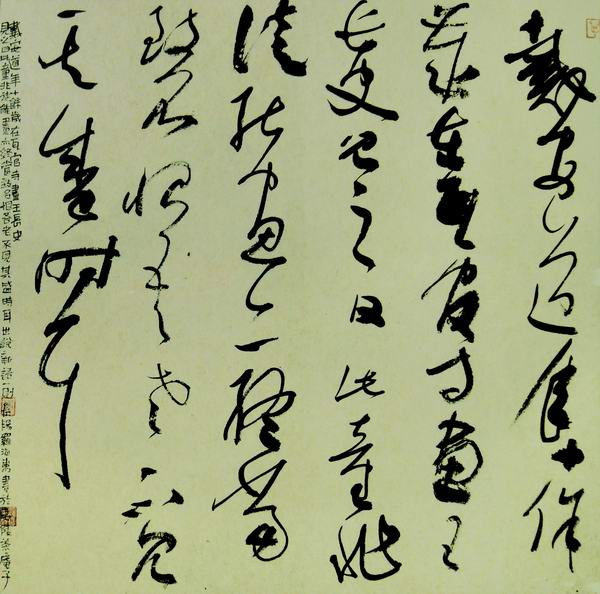 戴安道年十餘
歲在瓦官寺畫王
長史見之曰此童非
徒能畫亦終當
致名恨吾老不見
其盛時耳
戴安道年十餘歲在瓦官寺畫王長史
見之曰此童非徒能畫亦終當致名恨吾老不見其盛時耳出說新語一則書於